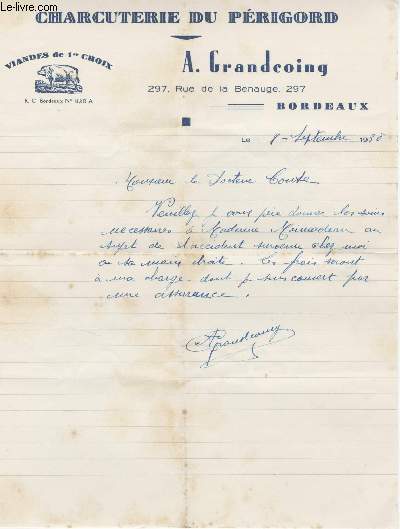 LE-LIVRE.COM
CHARCUTERIE DU PÉRIGORD
VIANDES de 1er CHOIX
A. Grandcoing
297, Rue de la Benauge, 297
R. C. Bordeaux N°
BORDEAUX
Le 8 - Septembre 19
Monsieur le Docteur
Veuillez je vous prie donner les soins
nécessaires à Madame au
sujet de l'accident survenu chez moi
à sa main droite. Ces frais seront
à ma charge dont je suis couvert par
une assurance.
AGrandcoing